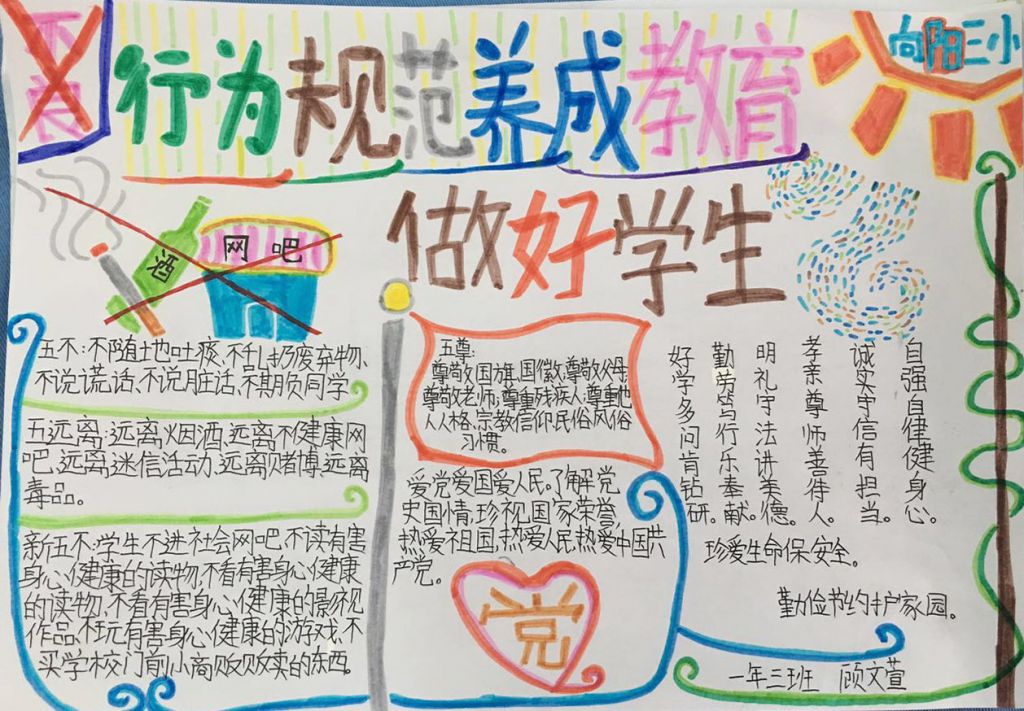 不良
行为规范养成教育
向阳三小
做好学生
酒
网吧
五不:不随地吐痰、不乱扔废弃物、
不说谎话、不说脏话、不欺负同学
五远离:远离烟酒,远离不健康网
吧,远离迷信活动,远离赌博,远离
毒品。
新五不:学生不进社会网吧,不读有害
身心健康的读物,不看有害身心健康
的读物,不看有害身心健康的影视
作品,不玩有害身心健康的游戏,不
买学校门前小商贩贩卖的东西。
五尊:
尊敬国旗,国徽;尊敬父母;
尊敬老师;尊重残疾人;尊重他
人人格、宗教信仰、民俗风俗
习惯。
爱党爱国爱人民。了解党
史国情,珍视国家荣誉,
热爱祖国,热爱人民,热爱中国共
产党。
党
好学多问肯钻研。
勤劳笃行乐奉献。
明礼守法讲美德。
孝亲尊师善待人。
诚实守信有担当。
自强自律健身心。
珍爱生命保安全。
勤俭节约护家园。
一年三班 顾文萱